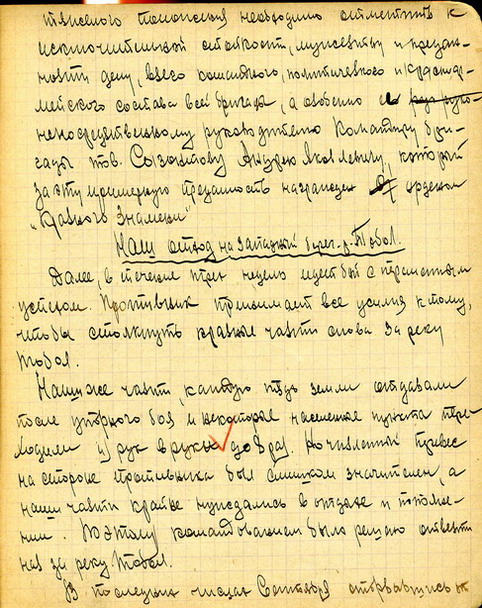 тяжелого положения необходимо отметить к
исключительной стойкости, мужеству и предан-
ности делу, всего командного, политического и красноар-
мейского состава всей бригады, а особенно
непосредственному руководителю Командиру бри-
гады тов. Сазонтову Андрею Яковлевичу, который
за эту примерную преданность награжден орденом
„Красного Знамени"
Наш отход на Западный берег р. Тобол.
Далее, в течение трех недель идет бой с переменным
успехом. Противник принимает все усилия к тому,
чтобы столкнуть красные части снова за реку
Тобол.
Наши же части, каждую пядь земли отдавали
после упорного боя и некоторые населенные пункты пере-
ходили из рук в руки до 8 раз. Но численный перевес
на стороне противника был слишком значителен, а
наши части крайне нуждались в отдыхе и пополне-
нии. Поэтому командованием было решено отвести
нас за реку Тобол.
В последних числах Сентября оторвавшись